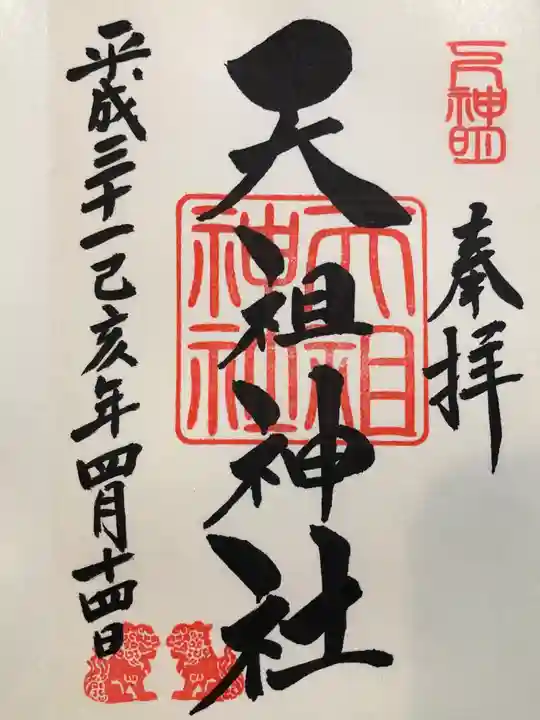 元神明
奉拝
天祖神社
天祖神社
平成三十一己亥年四月十四日